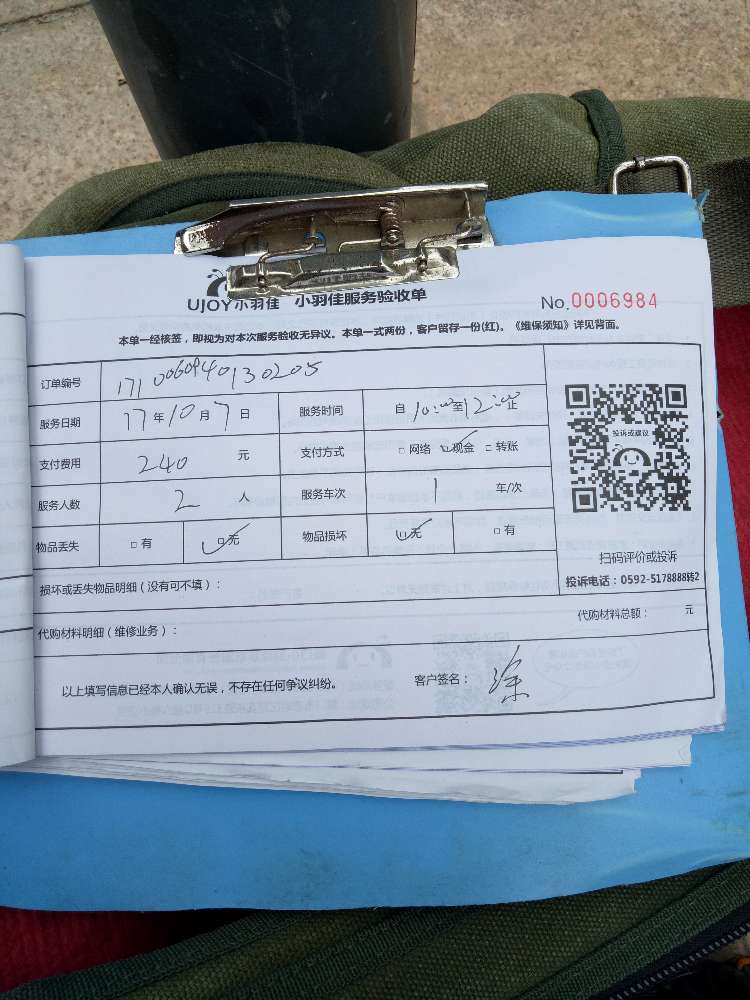 UJOY小羽佳 小羽佳服务验收单
No.0006984
本单一经核签，即视为对本次服务验收无异议。本单一式两份，客户留存一份(红)。《维保须知》详见背面。
订单编号 1710060940130205
服务日期 17年10月7日 服务时间 自10:00至12:00止
支付费用 240元 支付方式 □网络 ☑现金 □转账
服务人数 2人 服务车次 1车/次
物品丢失 □有 ☑无 物品损坏 ☑无 □有
投诉或建议
扫码评价或投诉
投诉电话：0592-5178888转2
损坏或丢失物品明细（没有可不填）：
代购材料明细（维修业务）： 代购材料总额： 元
以上填写信息已经本人确认无误，不存在任何争议纠纷。 客户签名：涂